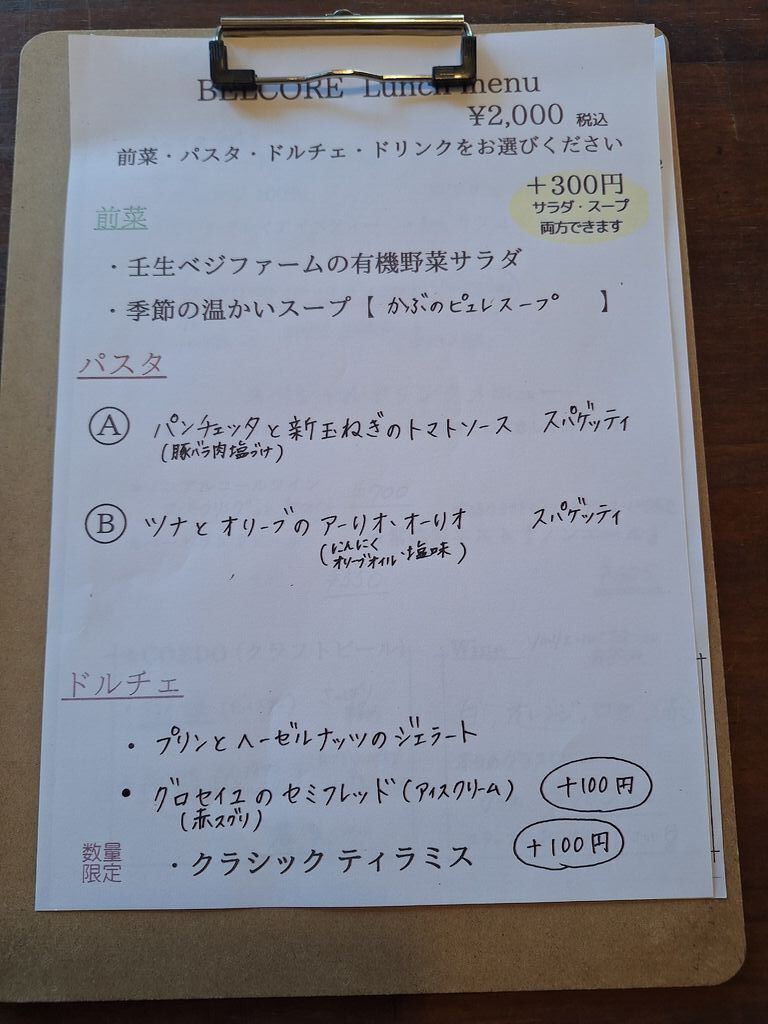 BELCORE Lunch menu
¥2,000 税込
前菜・パスタ・ドルチェ・ドリンクをお選びください
+300円
サラダ・スープ
両方できます
前菜
・壬生ベジファームの有機野菜サラダ
・季節の温かいスープ【 かぶのピュレスープ 】
パスタ
Ⓐ パンチェッタと新玉ねぎのトマトソース スパゲッティ
(豚バラ肉塩づけ)
Ⓑ ツナとオリーブのアーリオ、オーリオ スパゲッティ
(にんにく
オリーブオイル・塩味)
ドルチェ
・プリンとヘーゼルナッツのジェラート
・グロセイユのセミフレッド(アイスクリーム) +100円
(赤スグリ)
数量
限定
・クラシックティラミス +100円